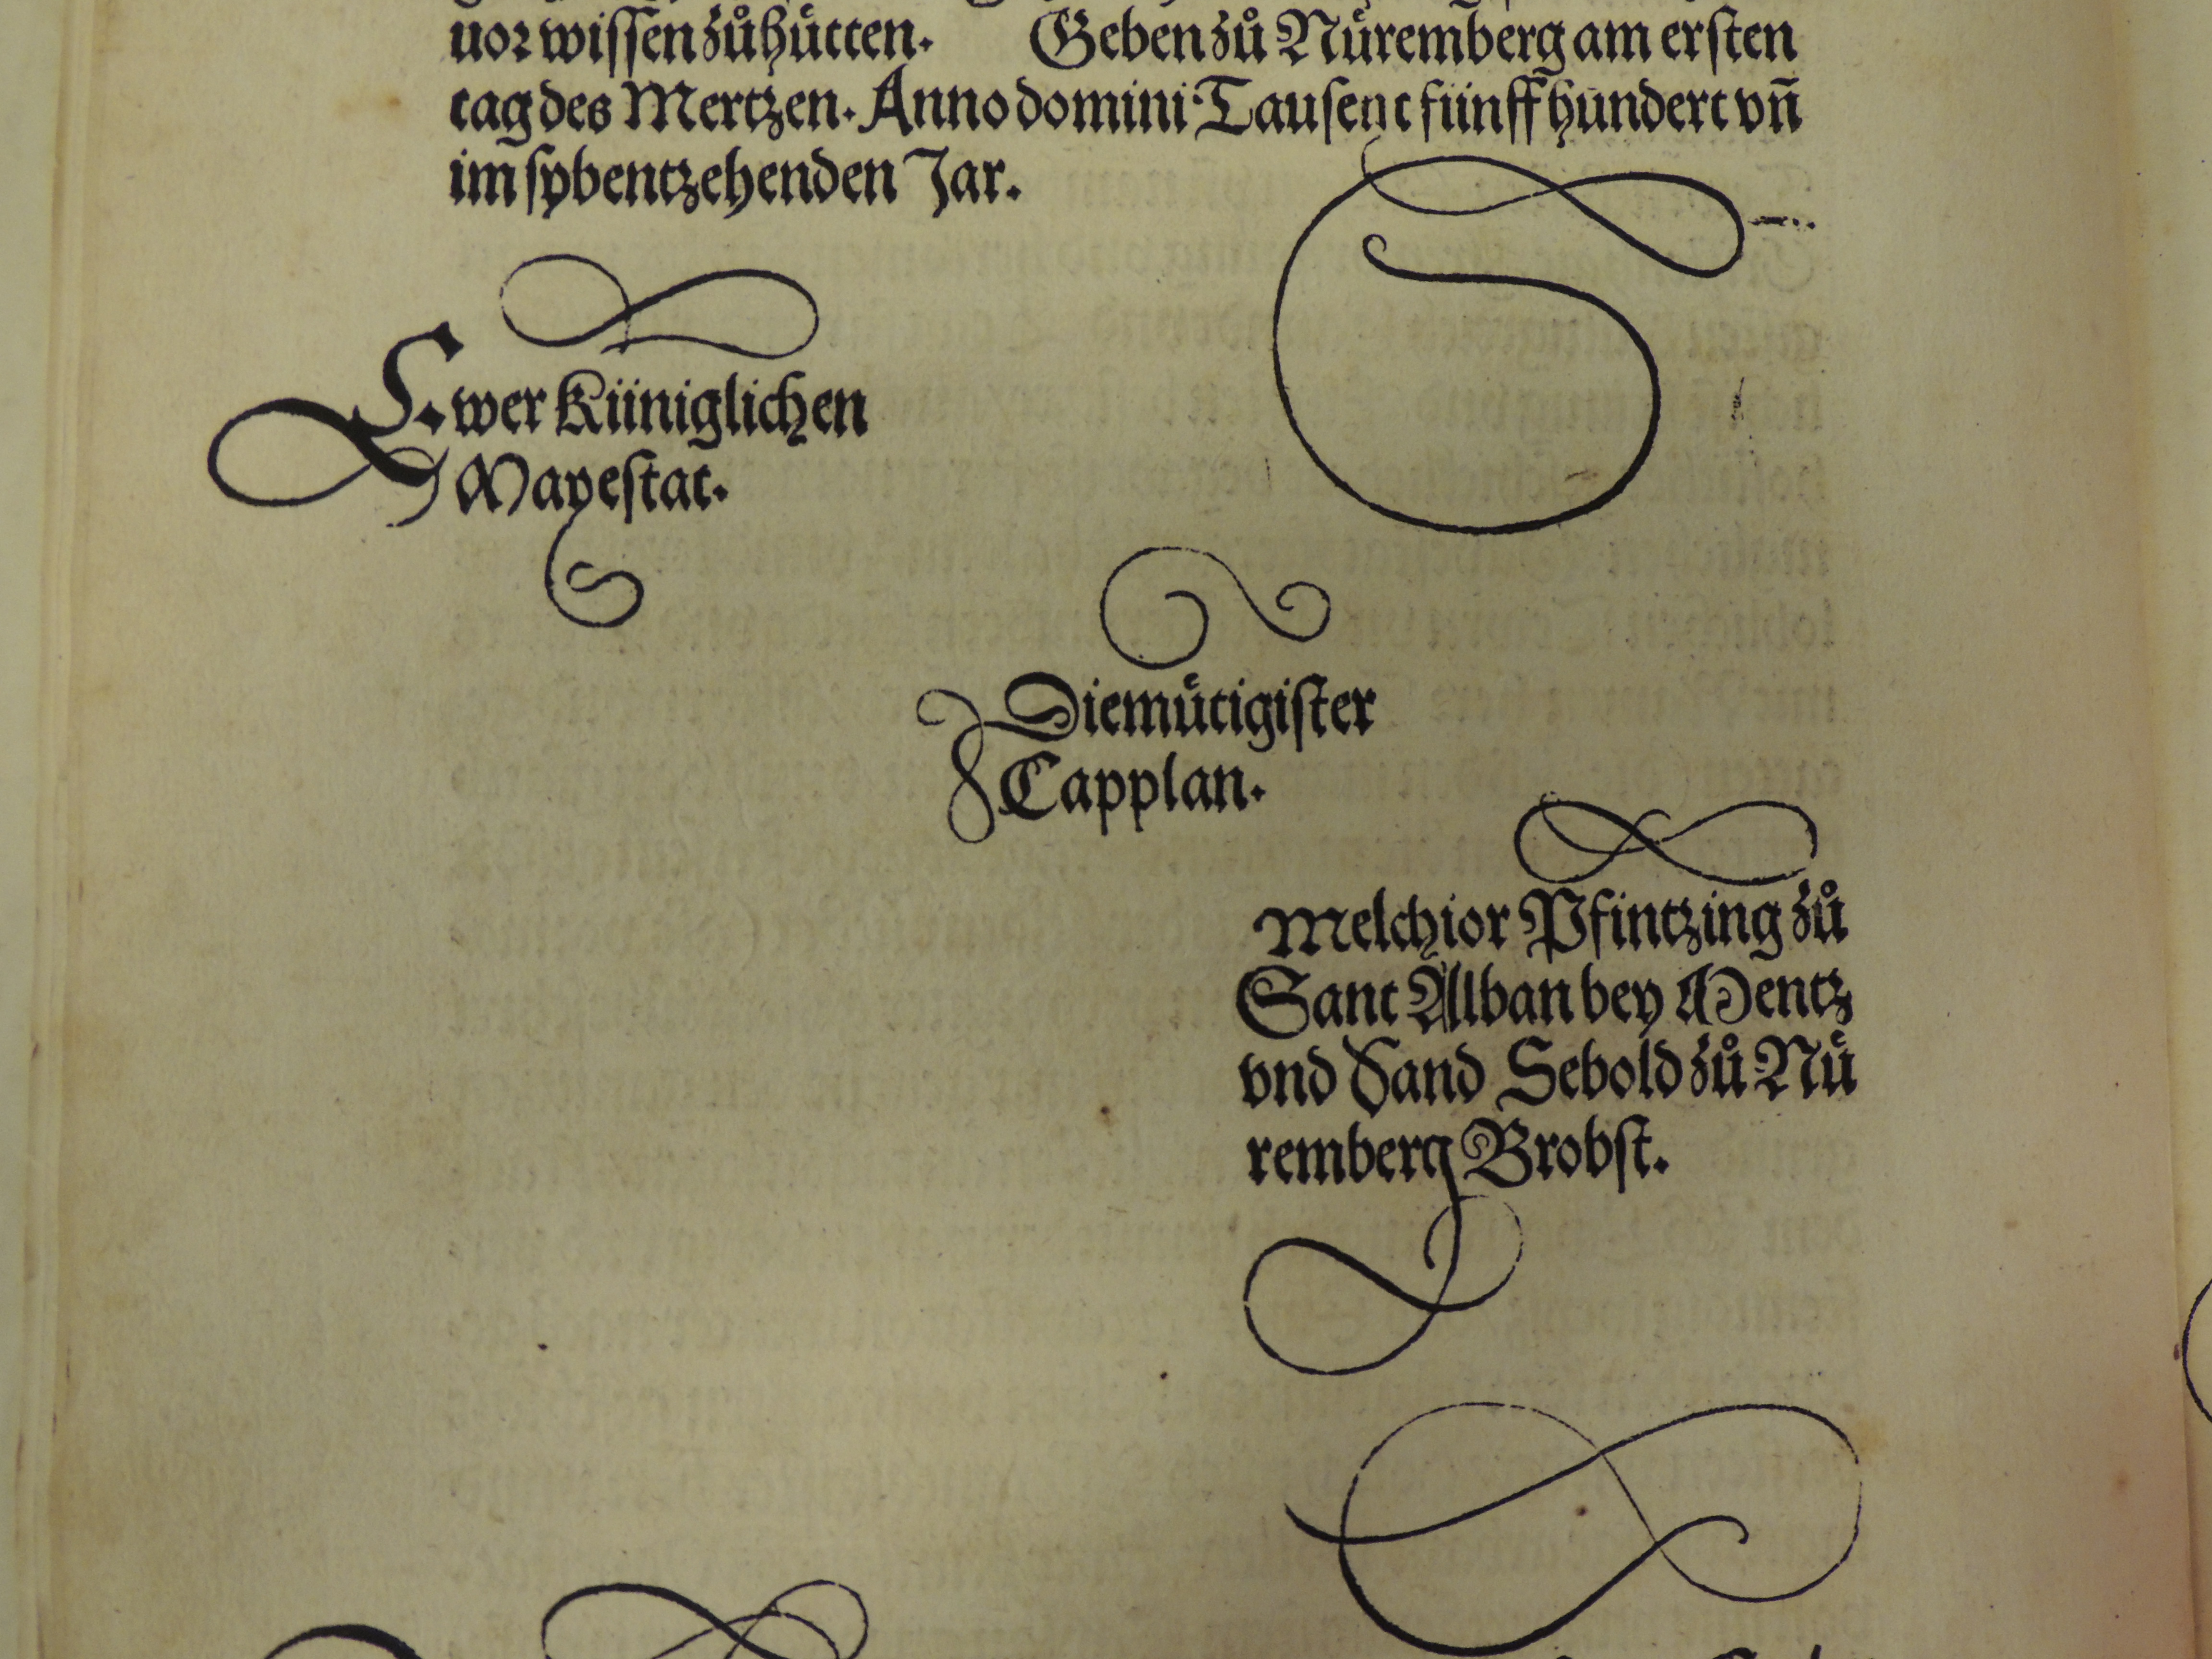 uor wissen zůhuͤtten. Geben zů Nuͤremberg am ersten
tag des Mertzen. Anno domini Tausent fünffhundert vn̄
im sybentzehenden Jar.
E. wer Küniglichen
Mayestat.
Diemuͤtigister
Capplan.
Melchior Pfintzing zů
Sant Alban bey Mentz
vnd Sand Sebold zů Nuͤ
remberg Brobst.